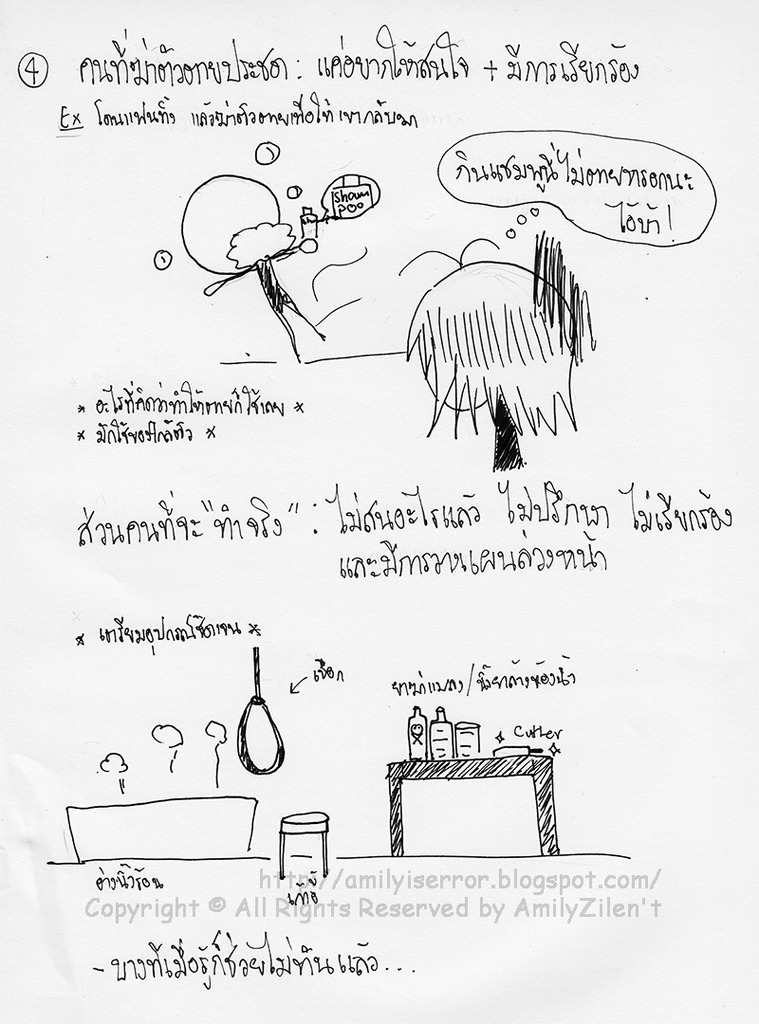 ④ คนที่ฆ่าตัวตายประชด : แค่อยากให้สนใจ + มีการเรียกร้อง
Ex โดนแฟนทิ้ง แล้วฆ่าตัวตายเพื่อให้เขากลับมา
sham
poo
กินแชมพูนี่ไม่ตายหรอกนะ
ไอ้บ้า!
* อะไรที่คิดว่าทำให้ตายก็ใช้เลย *
* มักใช้ของใกล้ตัว *
ส่วนคนที่จะ "ทำจริง" : ไม่สนอะไรแล้ว ไม่ปรึกษา ไม่เรียกร้อง
และมีการวางแผนล่วงหน้า
* เตรียมอุปกรณ์ชัดเจน *
เชือก
ยาฆ่าแมลง/น้ำยาล้างห้องน้ำ
Cutter
อ่างน้ำร้อน
เก้าอี้
http://amilyiserror.blogspot.com/
Copyright © All Rights Reserved by AmilyZilen't
- บางทีเมื่อรู้ก็ช่วยไม่ทันแล้ว...